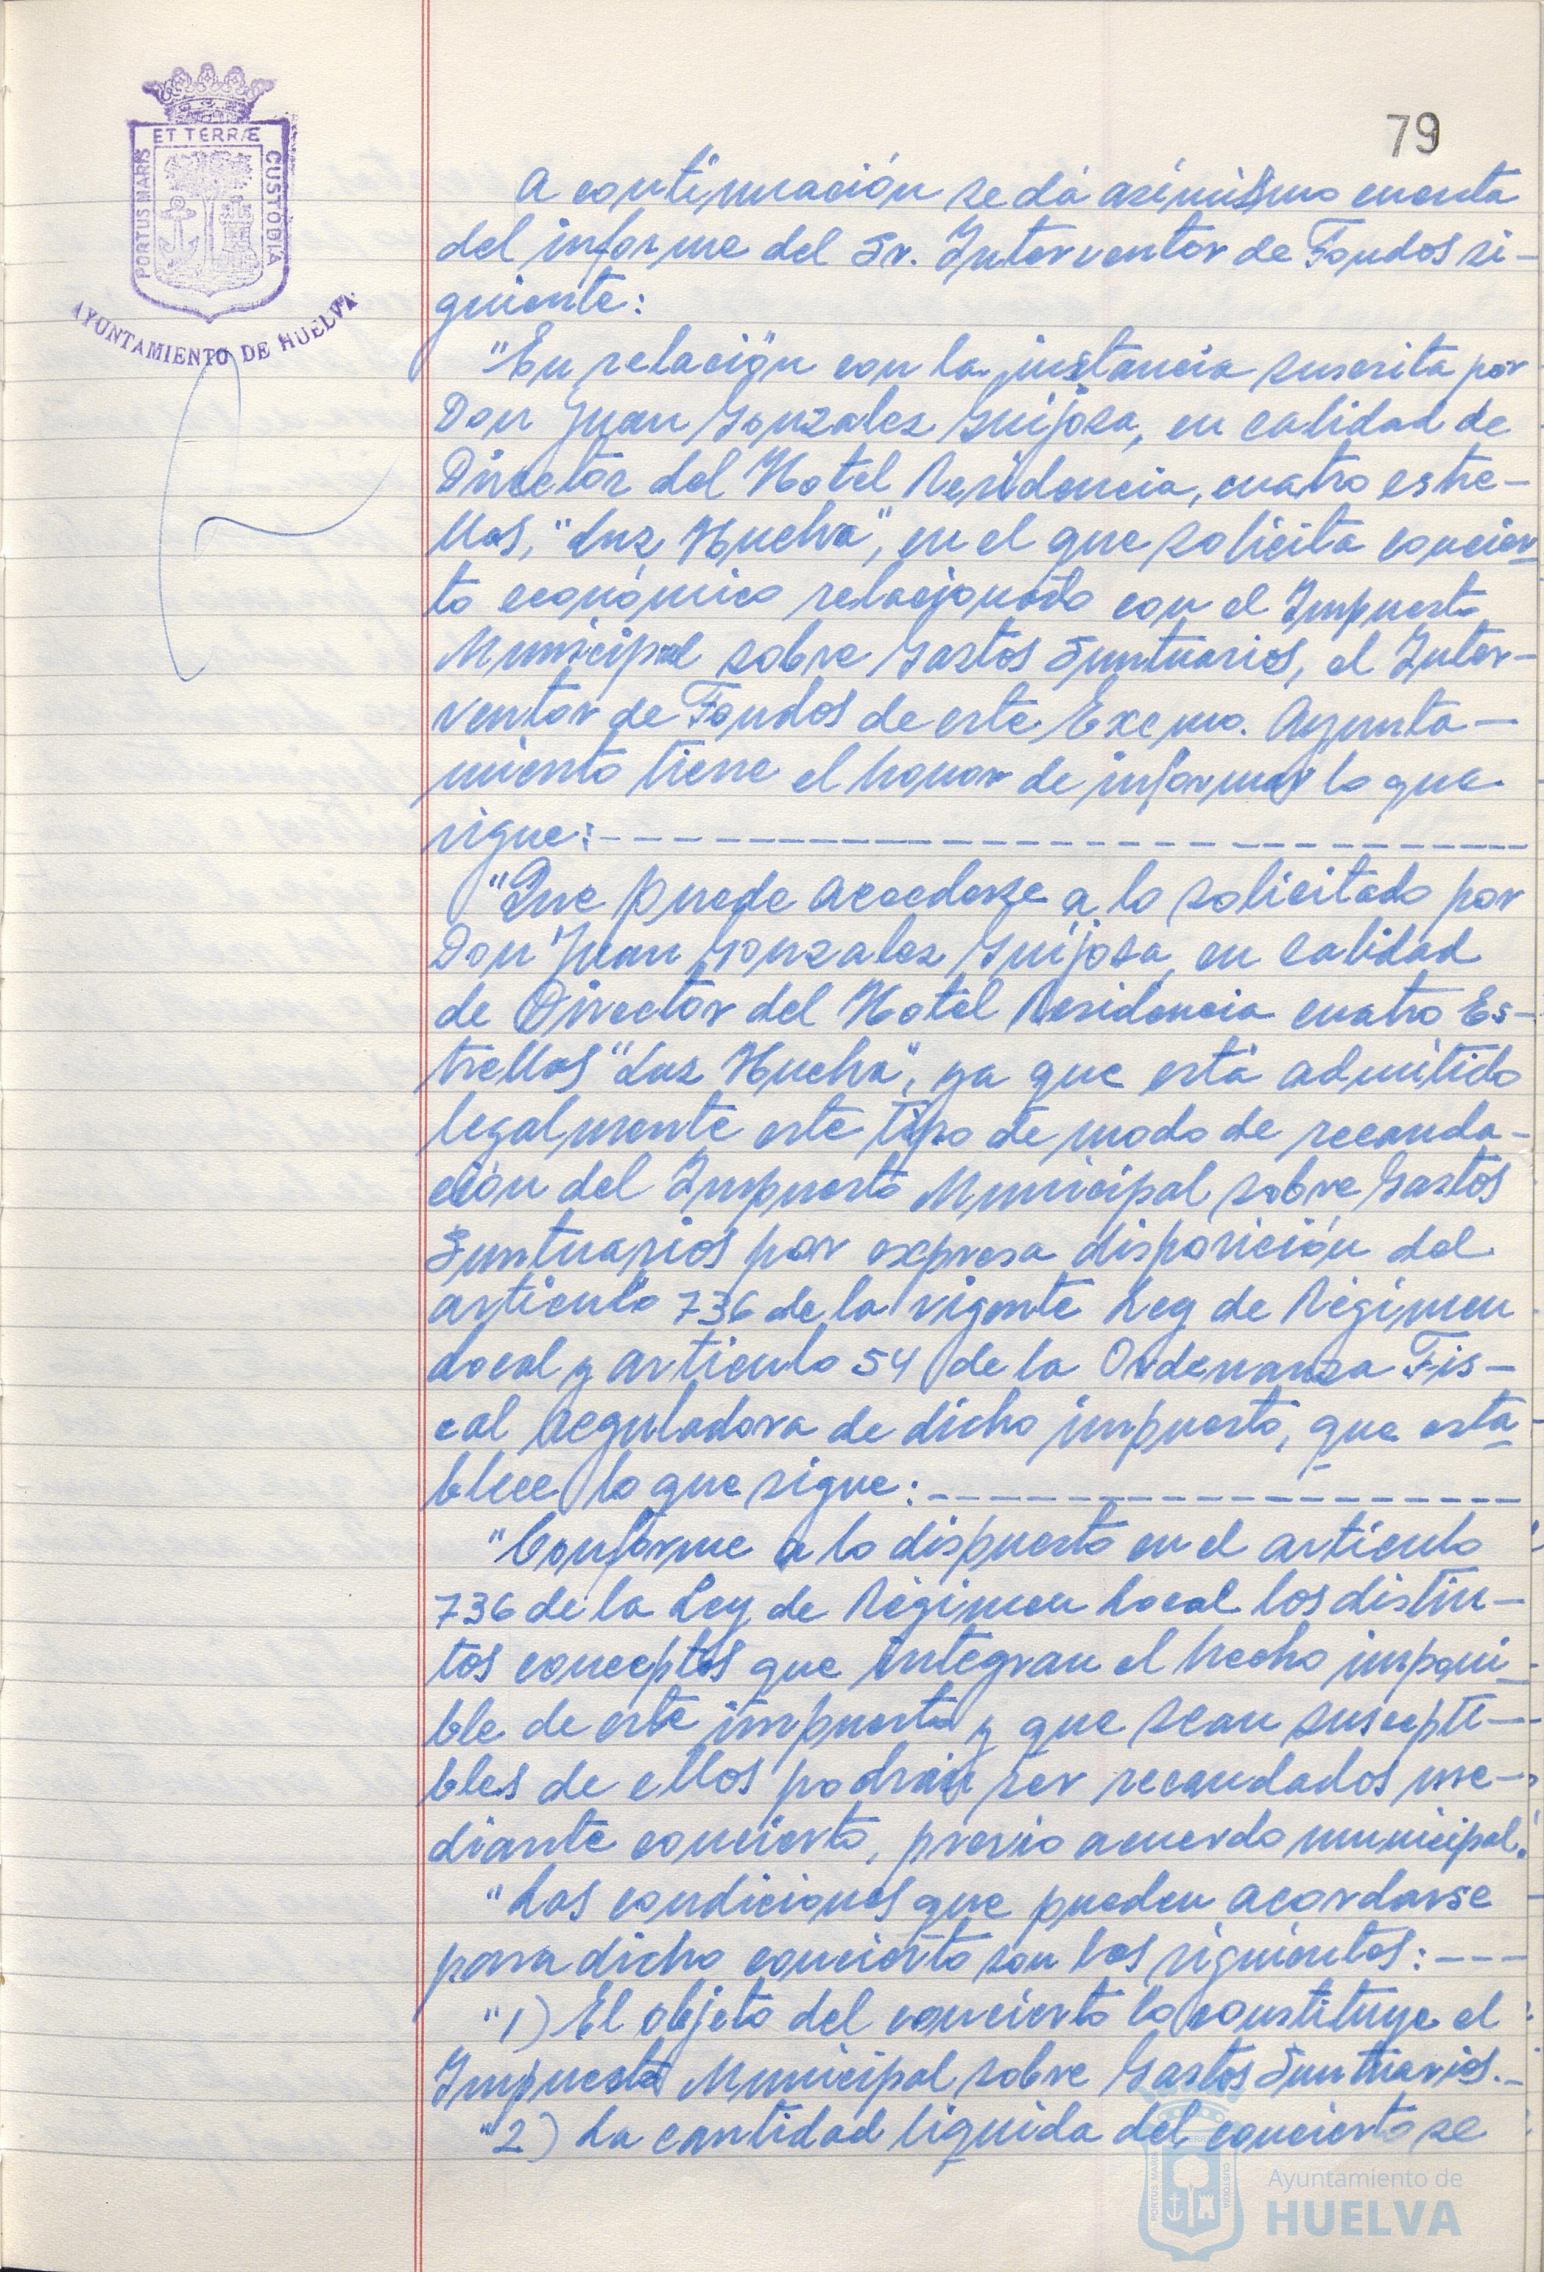 79
ET TERRÆ
PORTUS MARIS
CUSTODIA
AYUNTAMIENTO DE HUELVA
A continuación se dá asimismo cuenta
del informe del Sr. Interventor de Fondos si-
guiente:
"En relación con la instancia suscrita por
Don Juan Gonzalez Guijosa, en calidad de
Director del Hotel Residencia, cuatro estre-
llas, "Luz Huelva", en el que solicita concier-
to económico relacionado con el Impuesto
Municipal sobre Gastos Suntuarios, el Inter-
ventor de Fondos de este Excmo. Ayunta-
miento tiene el honor de informar lo que
sigue:
"Que puede accederse a lo solicitado por
Don Juan Gonzalez Guijosa, en calidad
de Director del Hotel Residencia cuatro Es-
trellas "Luz Huelva", ya que está admitido
legalmente este tipo de modo de recauda-
ción del Impuesto Municipal sobre Gastos
Suntuarios por expresa disposición del
articulo 736 de la vigente Ley de Régimen
Local y articulo 54 de la Ordenanza Fis-
cal Reguladora de dicho impuesto, que esta
blece lo que sigue:
"Conforme a lo dispuesto en el articulo
736 de la Ley de Régimen Local los distin-
tos conceptos que integran el hecho imponi-
ble de este impuesto y que sean suscepti-
bles de ellos podrán ser recaudados me-
diante concierto, previo acuerdo municipal.
"Las condiciones que pueden acordarse
para dicho concierto son las siguientes:
"1) El objeto del concierto lo constituye el
Impuesto Municipal sobre Gastos Suntuarios.-
"2) La cantidad liquida del concierto se
Ayuntamiento de
HUELVA